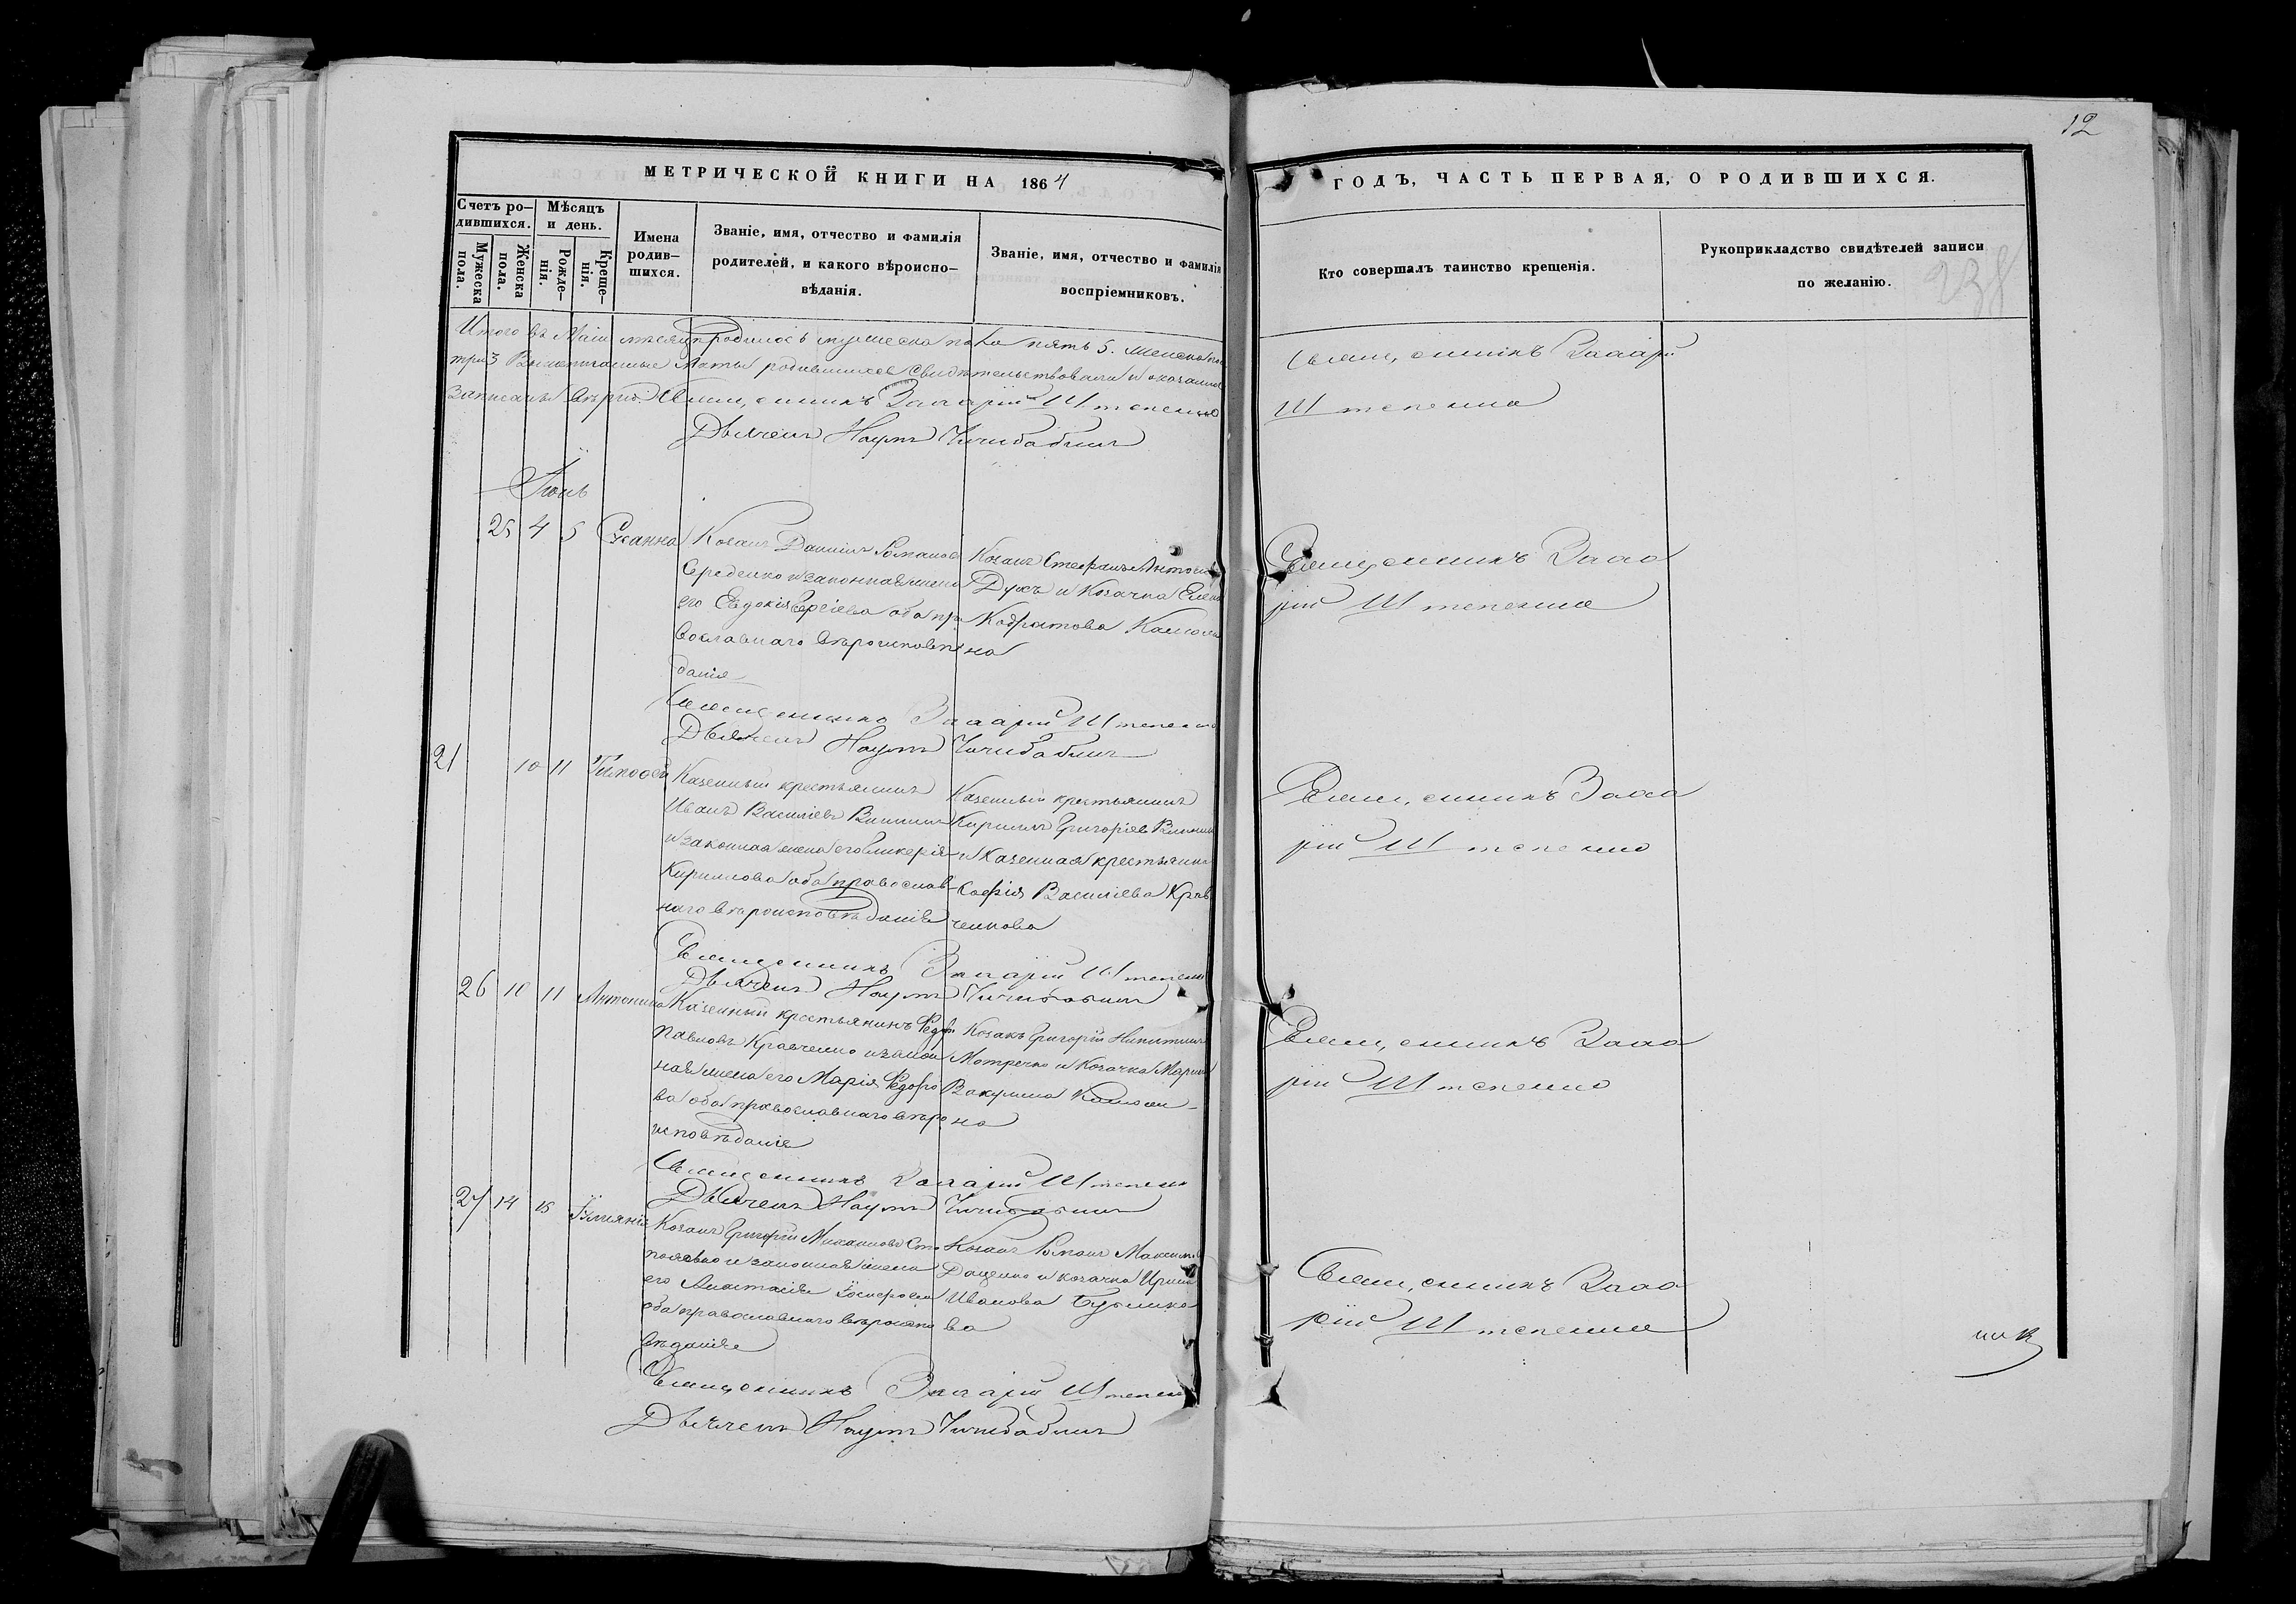 12
МЕТРИЧЕСКОЙ КНИГИ НА 1864
ГОДЪ, ЧАСТЬ ПЕРВАЯ, О РОДИВШИХСЯ.
Счетъ ро-
дившихся.
Мужеска
пола.
Женска
пола.
Мѣсяцъ
и день.
Рожде-
нія.
Креще-
нія.
Имена
родив-
шихся.
Званіе, имя, отчество и фамилія
родителей, и какого вѣроиспо-
вѣданія.
Званіе, имя, отчество и фамилія
воспріемниковъ.
Кто совершалъ таинство крещенія.
Рукоприкладство свидѣтелей записи
по желанію.
238
Итого въ Маіи мѣсяцѣ родилось мужеска пола пять 5. женска
три 3
родившихся свидѣтельствовали и
Священникъ Захарій Штепенко
Дьячекъ Наумъ Чичибабинъ
Священникъ Захарій
Штепенко
Іюнь
25 4 5 Сусанна
Козакъ Даніилъ Романовъ
Середенко и законная жена
его Евдокія Сергіева оба пра
вославнаго вѣроисповѣ
данія
Козакъ Стефанъ Антоно
Духъ и Козачка Елена
Кодратова
на
Священникъ Заха
рій Штепенко
Священникъ Захарій Штепенко
Дьячекъ Наумъ Чичибабинъ
21 10 11 Тимофей
Казенный крестьянинъ
Иванъ Василіевъ
и законная жена его Гликерія
Кирилова оба православ
наго вѣроисповѣданія
Казенный крестьянинъ
Кирилъ Григоріевъ
и казенная крестьянка
Софія Василіева Крав
ченкова
Священникъ Заха
рій Штепенко
Священникъ Захарій Штепенко
Дьячекъ Наумъ Чичибабинъ
26 10 11 Антонина
Казенный крестьянинъ Федоръ
Павловъ Кравченко и закон
ная жена его Марія Федоро
ва оба православнаго вѣро
исповѣданія
Козакъ Григорій Никитинъ
Мотречко и Козачка Марина
Вакулина
на
Священникъ Заха
рій Штепенко
Священникъ Захарій Штепенко
Дьячекъ Наумъ Чичибабинъ
27 14 15 Іуліянія
Козакъ Григорій Михаиловъ Сто
и законная жена
его Анастасія Іосифова
оба православнаго вѣроиспо
вѣданія
Козакъ Романъ Максимо
Даценко и козачка Ирина
Иванова
ва
Священникъ Заха
рій Штепенко
Священникъ Захарій Штепенко
Дьячекъ Наумъ Чичибабинъ